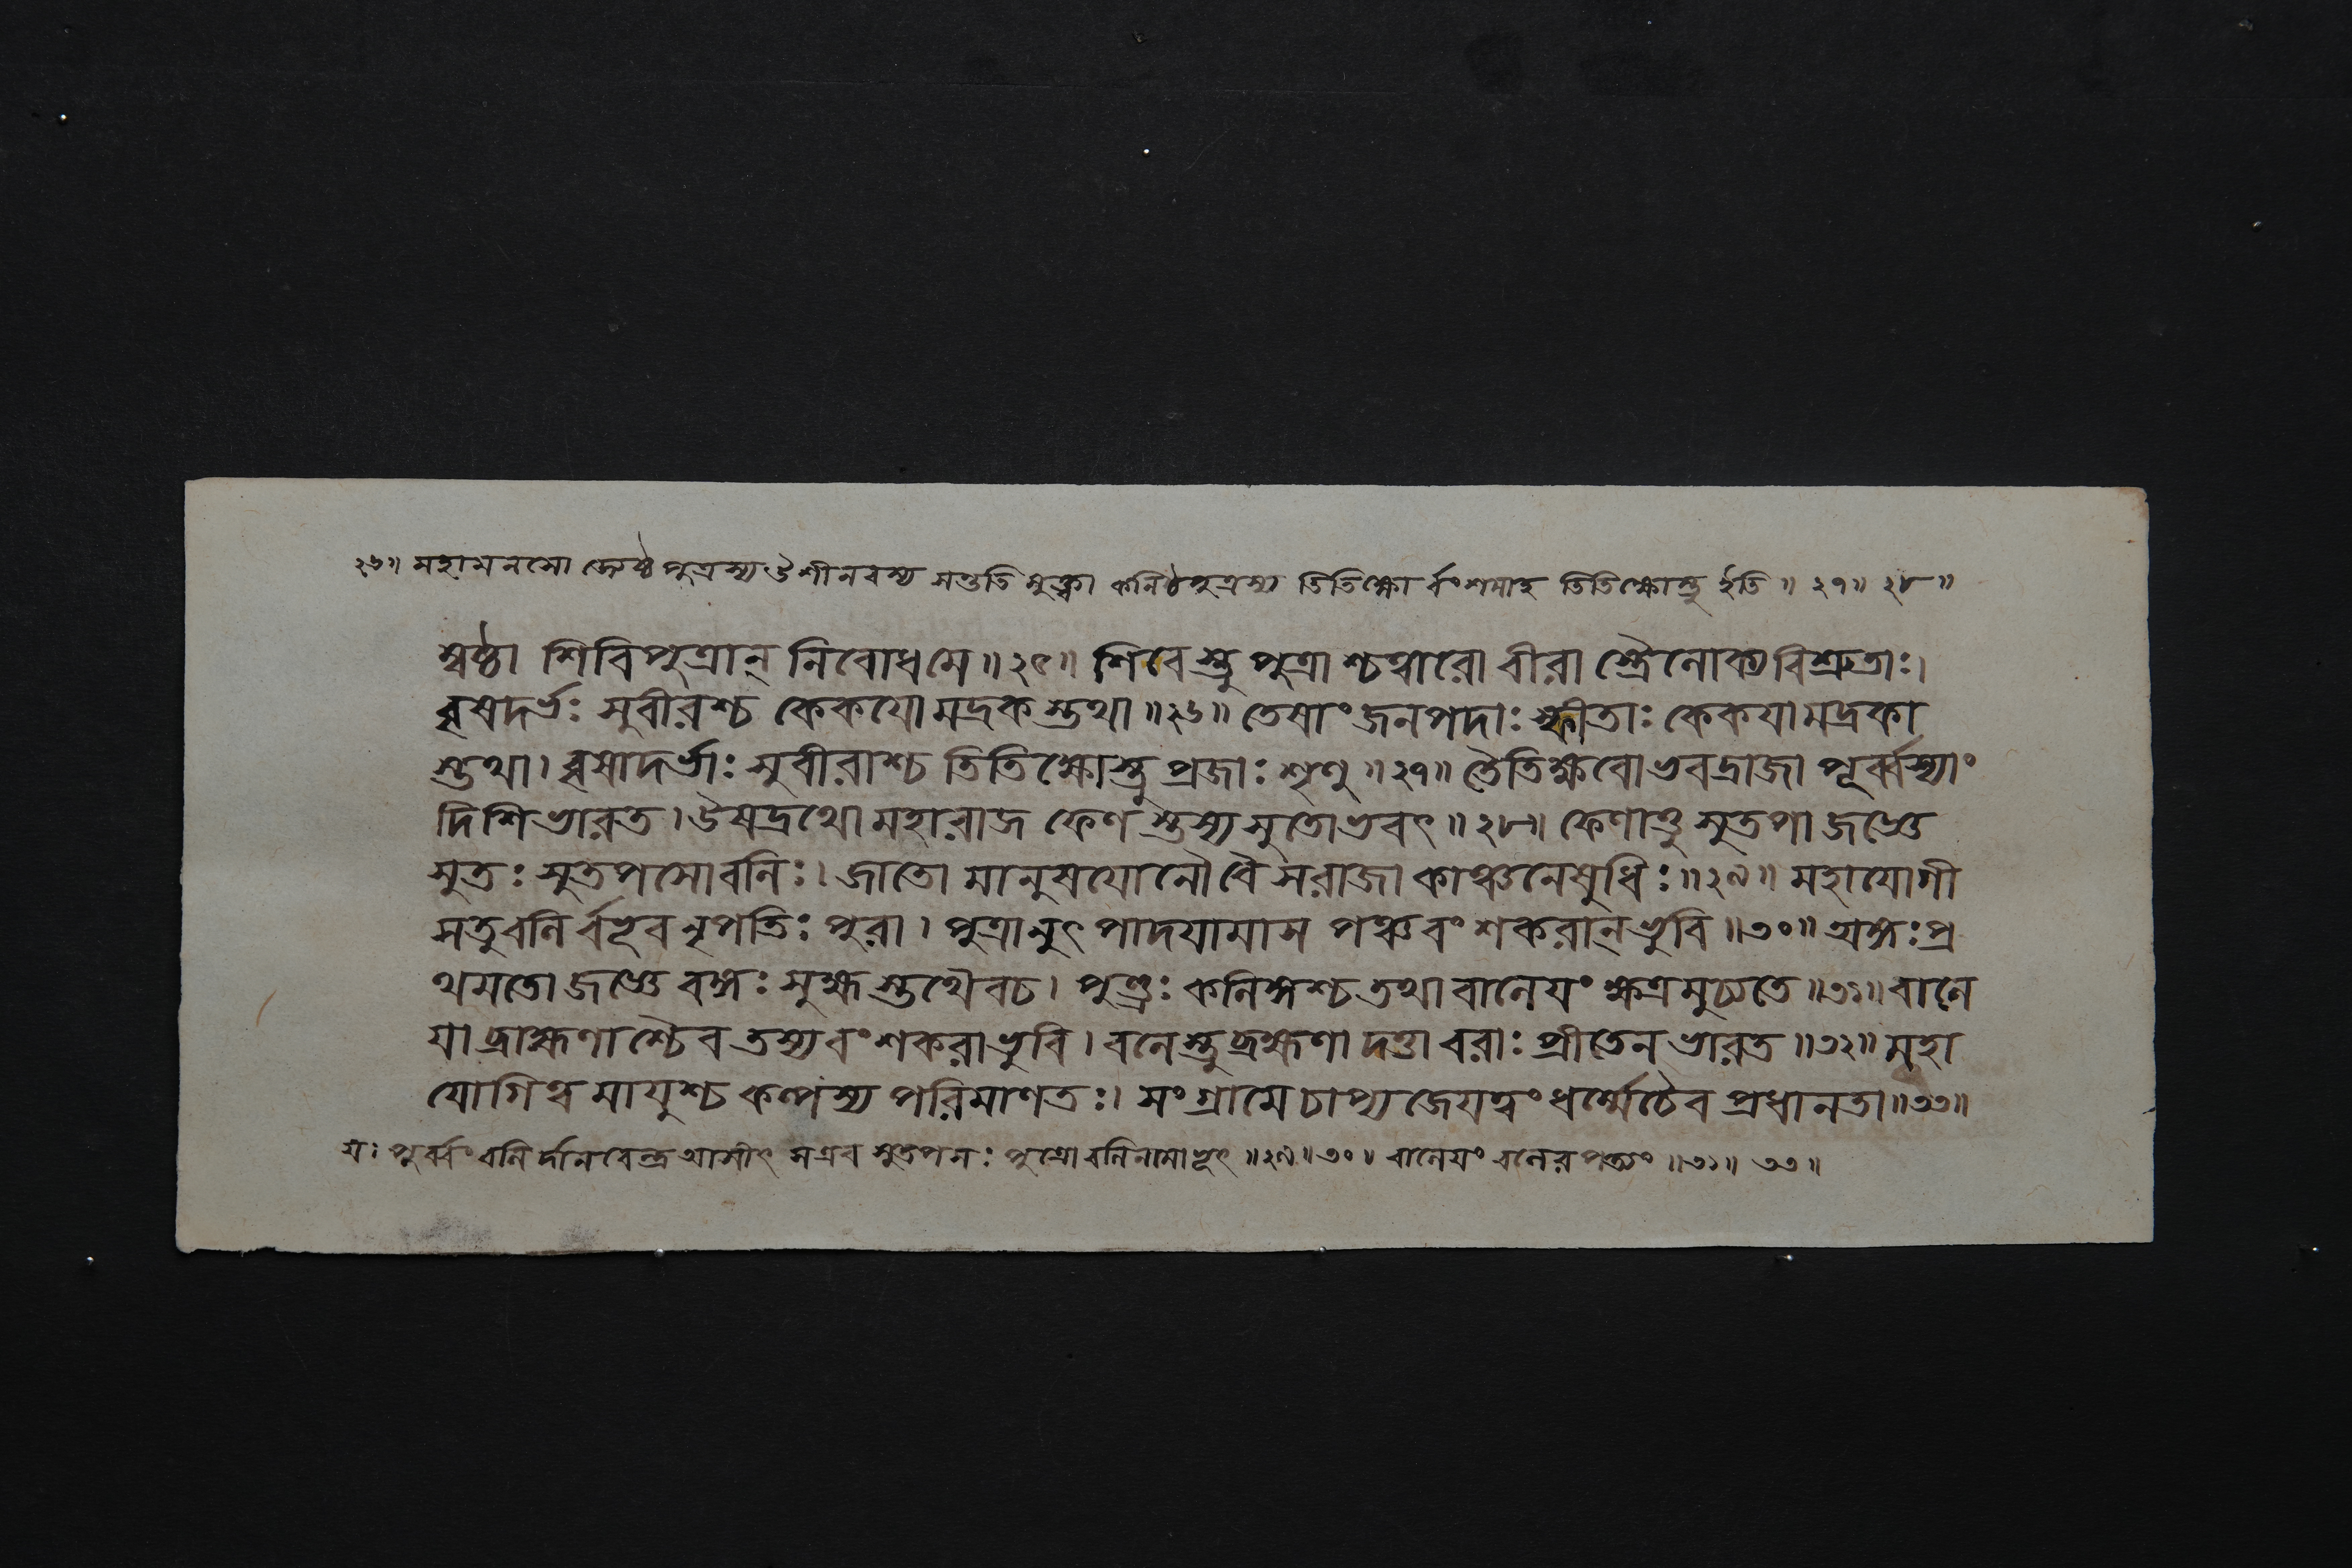 ২৬॥ মহামনসো জ্যেষ্ঠপুত্রস্য ঔশীনরস্য সন্ততিমুক্ত্বা কনিষ্ঠপুত্রস্য তিতিক্ষোর্বংশমাহ তিতিক্ষোস্তু ইতি॥ ২৭॥ ২৮॥
ম্বষ্ঠা শিবিপুত্রান্ নিবোধমে॥২৫॥ শিবেস্তু পুত্রাশ্চত্বারো বীরা স্ত্রৈলোক্যবিশ্রুতাঃ।
বৃষদর্ভঃ সুবীরশ্চ কেকয়ো মদ্রকস্তথা॥২৬॥ তেষাং জনপদাঃ স্ফীতাঃ কেকয়ামদ্রকা
স্তথা। বৃষাদর্ভাঃ সুবীরাশ্চ তিতিক্ষোস্তু প্রজাঃ শৃণু॥২৭॥ তৈতিক্ষবোভবদ্রাজা পূর্ব্বস্যাং
দিশিভারত। ঔষদ্রথো মহারাজ ফেণস্তস্য সুতোভবৎ॥২৮॥ ফেণাত্তু সুতপা জজ্ঞে
সুতঃ সুতপসোবলিঃ। জাতো মানুষযোনৌ বৈ সরাজা কাঞ্চনেষুধিঃ॥২৯॥ মহাযোগী
সতুবলির্বভূব নৃপতিঃ পুরা। পুত্রানুৎপাদয়ামাস পঞ্চবংশকরান্ভুবি॥৩০॥ অঙ্গঃ প্র
থমতো জজ্ঞে বঙ্গঃ সুহ্মস্তথৈবচ। পুণ্ড্রঃ কলিঙ্গশ্চ তথা বালেয়ং ক্ষত্রমুচ্যতে॥৩১॥ বালে
য়া ব্রাহ্মণাশ্চৈব তস্যবংশকরাভুবি। বলেস্তুব্রহ্মণা দত্তা বরাঃ প্রীতেন ভারত॥৩২॥ মহা
যোগিত্বমায়ুশ্চ কল্পস্য পরিমাণতঃ। সংগ্রামে চাপ্যজেয়ত্বং ধর্ম্মেচৈব প্রধানতা॥৩৩॥
যঃ পূর্ব্বং বলির্দানবেন্দ্র আসীৎ সএব সুতপসঃ পুত্রো বলিনামাভূৎ॥২৯॥৩০॥ বালেয়ং বলেরপত্যং॥৩১॥ ৩৩॥